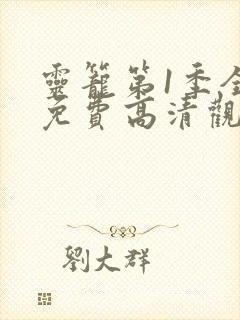 靈籠第1季全
免費高清觀
劉大群